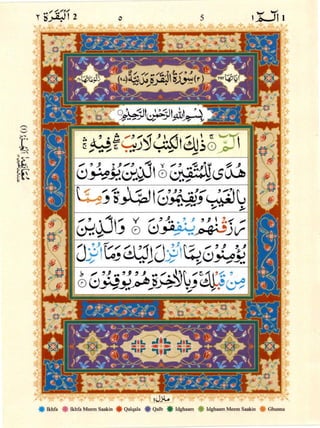 ٢ ٱلْبَقَرَة 2 ٥ 5 ١ الٓمّٓ 1
(٢) سُوْرَةُ الْبَقَرَةِ مَدَنِيَّةٌ (٨٧)
بِسْمِ اللّٰهِ الرَّحْمٰنِ الرَّحِيْمِ
الٓمّٓ ۝١ ذٰلِكَ الْكِتٰبُ لَا رَيْبَ ۛۚ فِيْهِ ۛۚ
هُدًى لِّلْمُتَّقِيْنَ ۝٢ الَّذِيْنَ يُؤْمِنُوْنَ
بِالْغَيْبِ وَيُقِيْمُوْنَ الصَّلٰوةَ وَمِمَّا
رَزَقْنٰهُمْ يُنْفِقُوْنَ ۝٣ وَالَّذِيْنَ
يُؤْمِنُوْنَ بِمَآ اُنْزِلَ اِلَيْكَ وَمَآ اُنْزِلَ
مِنْ قَبْلِكَ ۚ وَبِالْاٰخِرَةِ هُمْ يُوْقِنُوْنَ ۝٤
منزل ١
Ikhfa Ikhfa Meem Saakin Qalqala Qalb Idghaam Idghaam Meem Saakin Ghunna